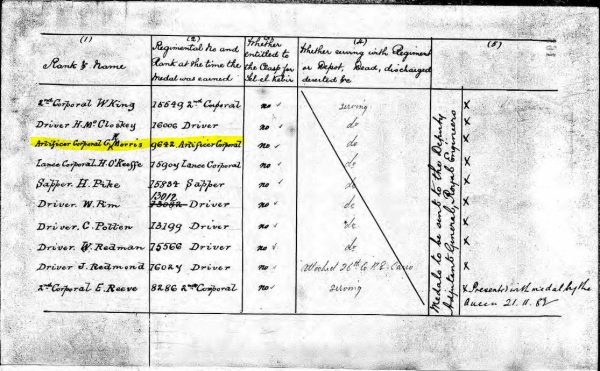 (1) (2) (4) (5)
Rank & Name
Regimental No and Rank at the time the Medal was earned
Whether entitled to the Clasp for Tel-el-Kebir
Whether serving with Regiment or Depot, Dead, discharged deserted &c
2nd Corporal W. King 15549 2nd Corporal no serving x
Driver H. McCloskey 16006 Driver no do x
Artificer Corporal G. Morris 9642 Artificer Corporal no do x
Lance Corporal H. O'Keeffe Lance Corporal no do x
Sapper H. Pike 15834 Sapper no do x
Driver W. Driver no do x
Driver C. Potten 13199 Driver no do x
Driver W. Redman 15566 Driver no do x
Driver J. Redmond Driver no Attached 26th Co R.E. Cairo x
2nd Corporal E. Reeve 8286 2nd Corporal no serving
x Presented with medal by the Queen 21.11.82
Medals to be sent to the Deputy Adjutant General, Royal Engineers